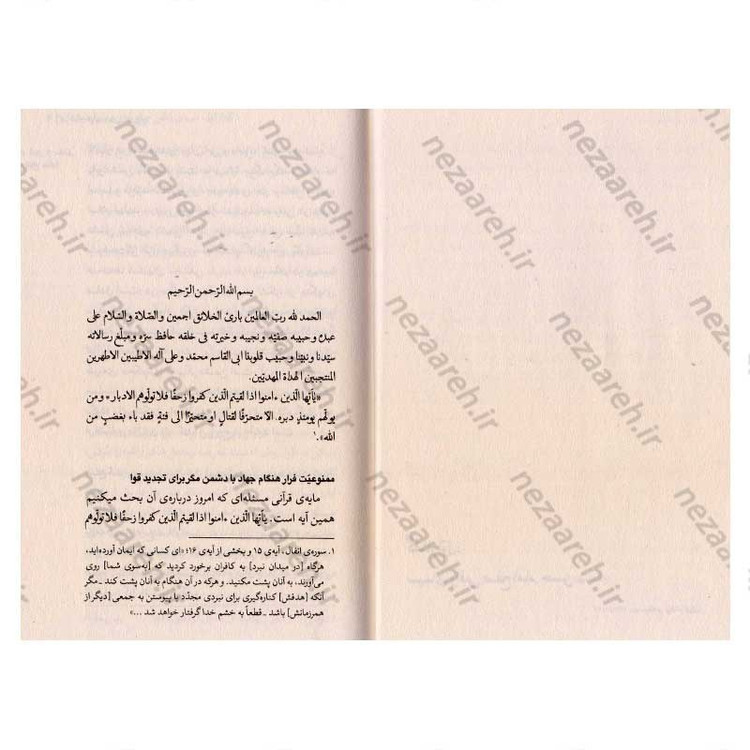 بسم الله الرّحمن الرّحیم
الحمد لله ربّ العالمین بارئ الخلائق اجمعین و الصّلاة و السّلام علی
عبده و حبیبه صفیّه و نجیبه و خیرته فی خلقه حافظ سرّه و مبلّغ رسالاته
سیّدنا و نبیّنا و حبیب قلوبنا ابی القاسم محمّد و علی آله الاطیبین الاطهرین
المنتجبین الهداة المهدیّین.
«یأیّها الّذین ءامنوا اذا لقیتم الّذین کفروا زحفًا فلا تولّوهم الادبار٭ و من
یولّهم یومئذٍ دبره. الّا متحرّفًا لقتال او متحیّزًا الی فئةٍ فقد باء بغضبٍ من
الله».¹
ممنوعیّت فرار هنگام جهاد با دشمن مگر برای تجدید قوا
مایه‌ی قرآنی مسئله‌ای که امروز درباره‌ی آن بحث میکنیم
همین آیه است. یأیّها الّذین ءامنوا اذا لقیتم الّذین کفروا زحفًا فلا تولّوهم
۱. سوره‌ی انفال، آیه‌ی ۱۵ و بخشی از آیه‌ی ۱۶؛ «ای کسانی که ایمان آورده‌اید،
هرگاه [در میدان نبرد] به کافران برخورد کردید که [به‌سوی شما] روی
می‌آورند، به آنان پشت مکنید. و هرکه در آن هنگام به آنان پشت کند ـ مگر
آنکه [هدفش] کناره‌گیری برای نبردی مجدّد یا پیوستن به جمعی [دیگر از
همرزمانش] باشد ـ قطعاً به خشم خدا گرفتار خواهد شد ...»
nezaareh.ir
nezaareh.ir
nezaareh.ir
nezaareh.ir
nezaareh.ir
nezaareh.ir
nezaareh.ir
nezaareh.ir
nezaareh.ir
nezaareh.ir
nezaareh.ir